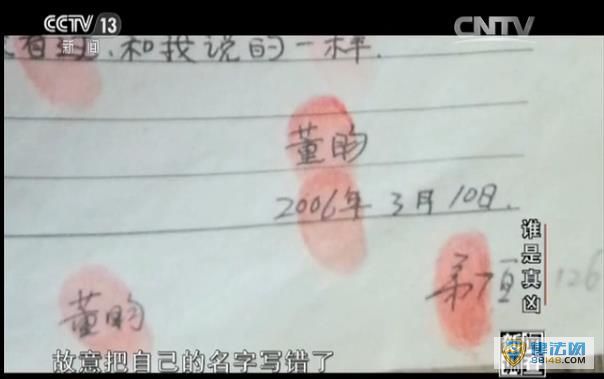 CCTV 13
新闻
CNTV
和我说的一样.
董昀
2006年3月10日.
谁是真凶
第7页
126
董昀
故意把自己的名字写错了
律法网
98148.com